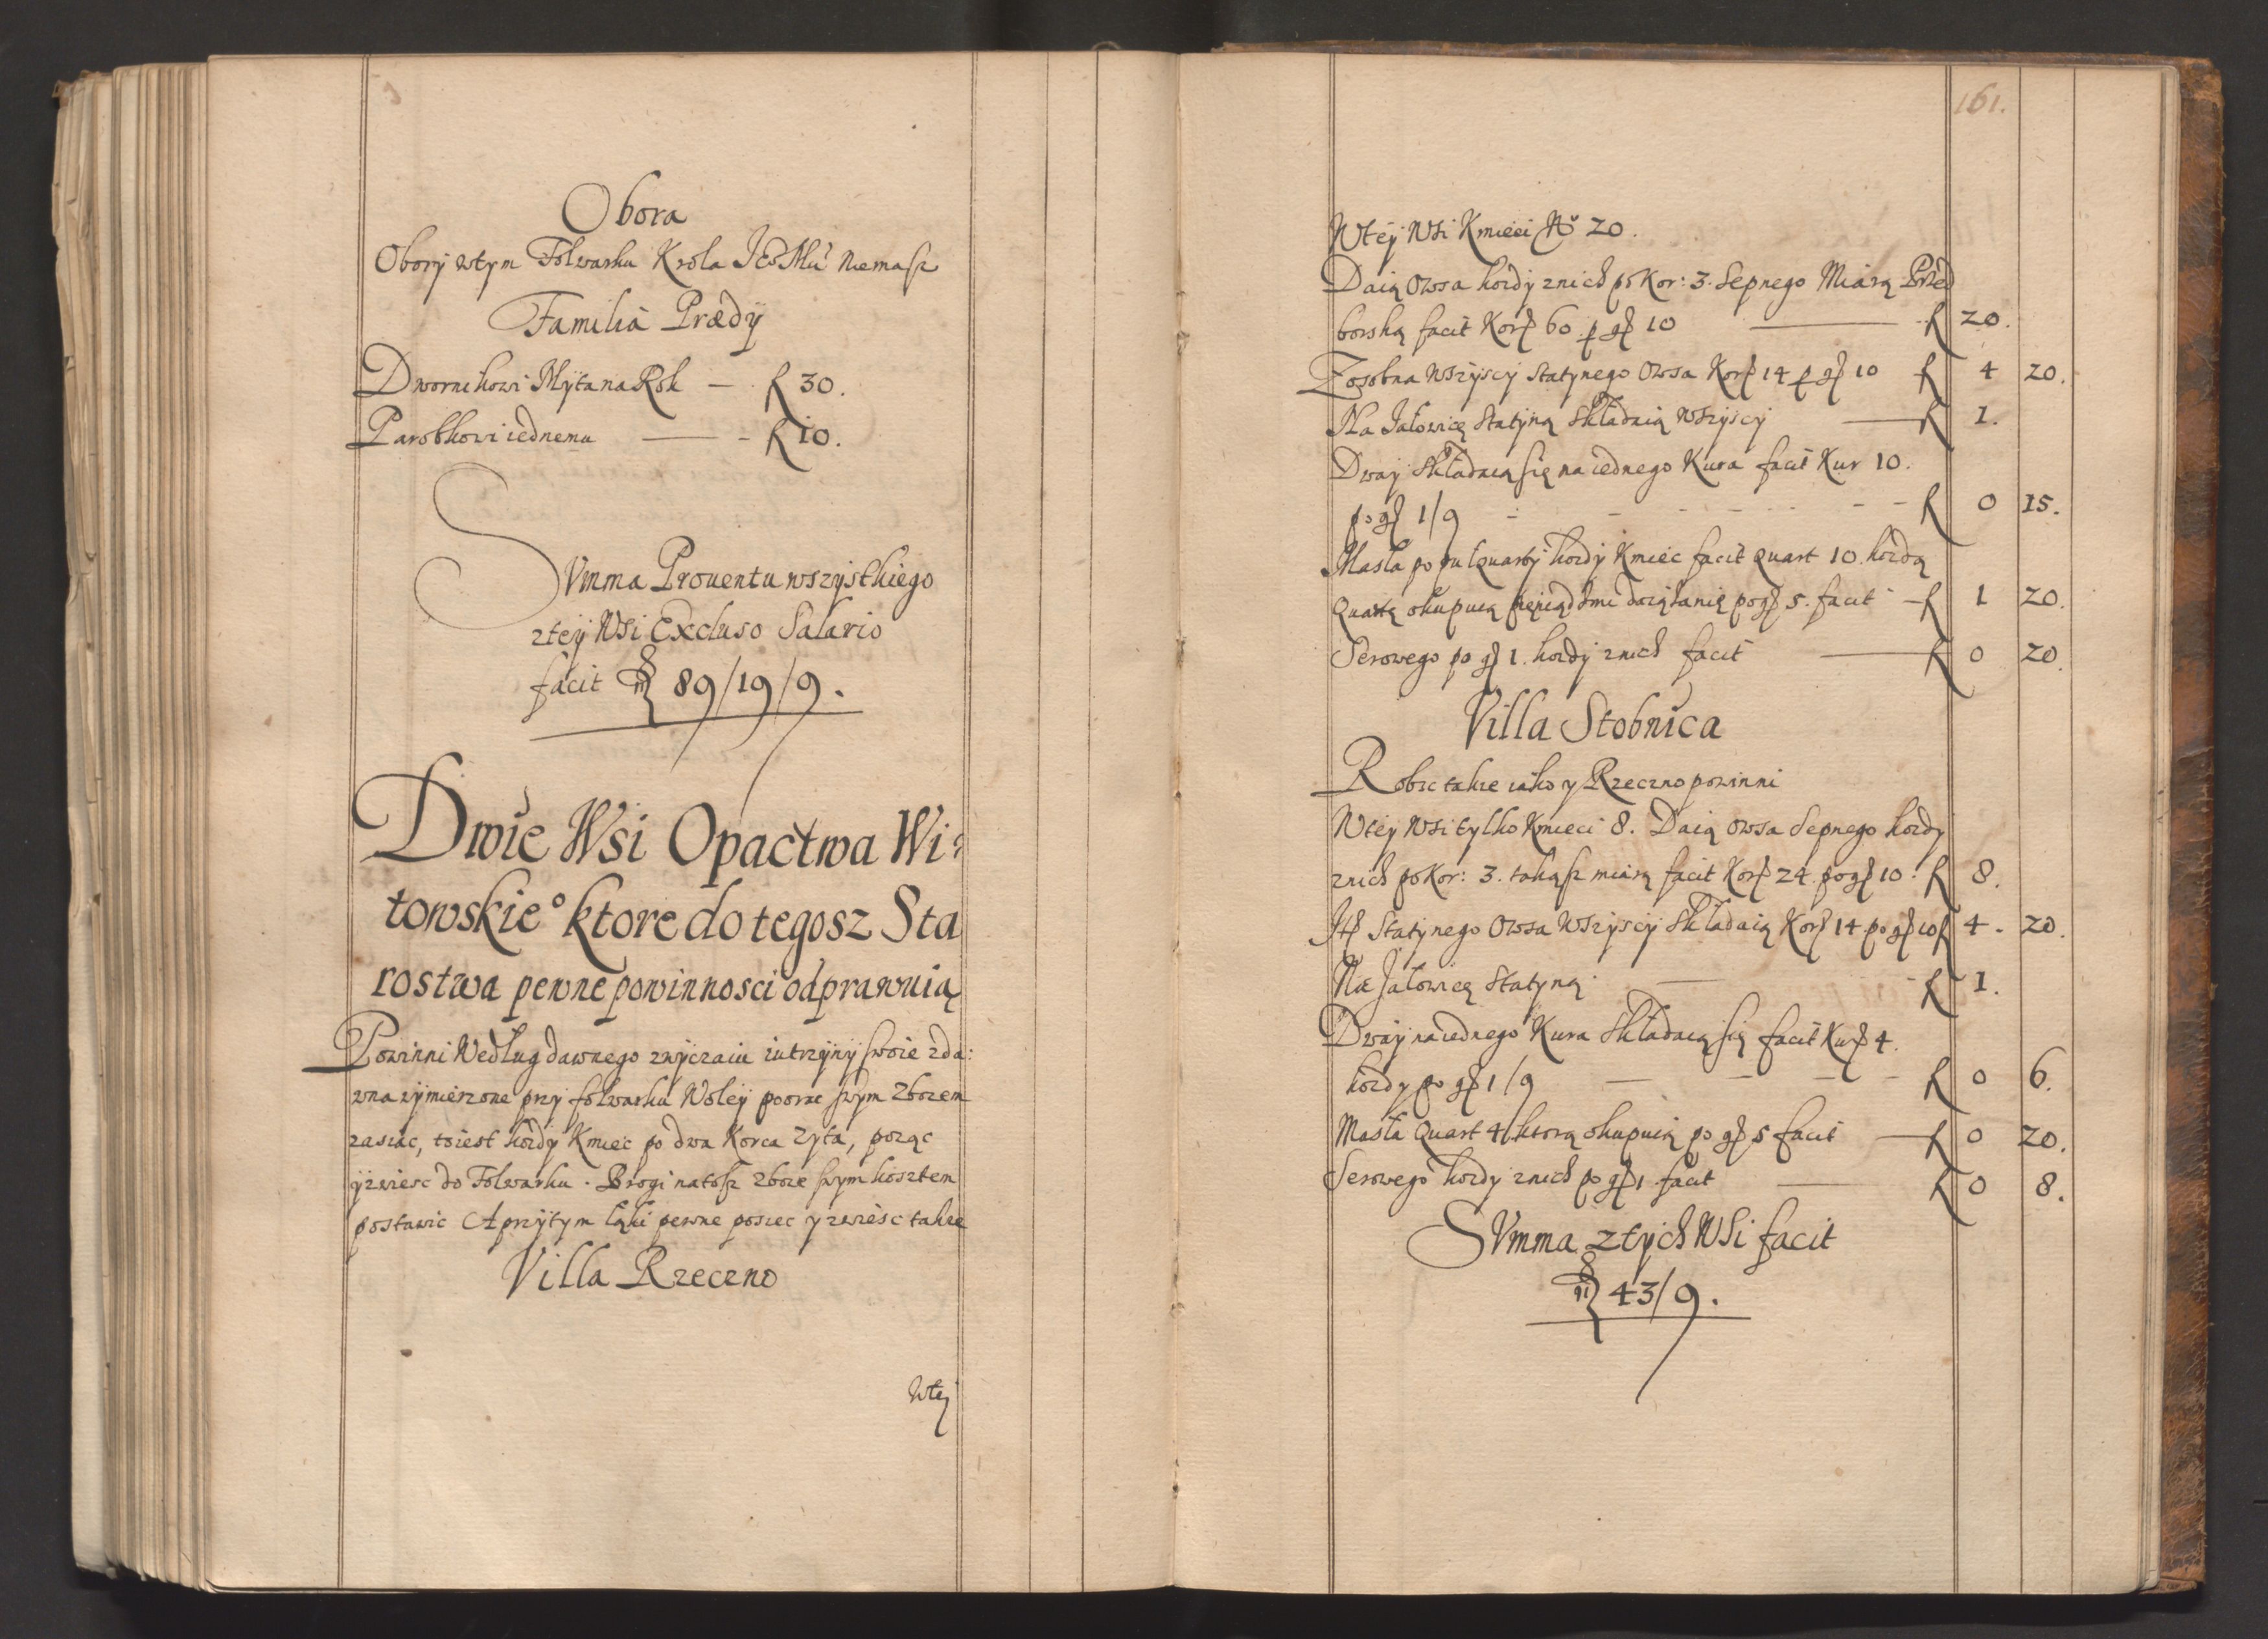 Obora
Obory wtym Folwarku Krola Je͠o Mći niemasz
Familia Prædÿ
Dwornikowi Mÿta na Rok — f 30.
Parobkowi iednemu — f 10.
SVmma Prouentu wszystkiego
zteÿ Wsi Excluso Salario
facit f 89/19/9.
Dwie Wsi Opactwa Wi:
towskie° ktore do tegosz Sta
rostwa pewne powinnosci odprawuią
Powinni Według dawnego zwÿczaiu iutrzÿnÿ swoie zda:
wna wÿmierzone przÿ folwarku Woleÿ poorac swym zbozem
zasiac, to iest kozdÿ Kmiec po dwa Korca Zyta, poząc
ÿ zwiesc do Folwarku. Brogi na tosz zboze swym kosztem
postawic A przÿtym łąki pewne posiec y zwiesc takze
Villa Rzeczno
Wteÿ
161.
Wteÿ Wsi Kmieci N° 20.
Daią Owsa kozdÿ znich po Kor: 3. Sepnego Miarą Przed
borską facit Kor 60. p gr 10 — f 20.
Zosobna Wszÿscÿ Statÿnego Owsa Kor 14 p gr 10 f 4 20.
Na Jałowicę Statÿną składaią Wszÿscÿ — f 1.
Dwaÿ składaią się na iednego Kura facit Kur 10.
po gr 1/9 — f 0 15.
Masła po puł Quartÿ kozdÿ Kmiec facit Quart 10. kozdą
Quartę okupuią pięniądzmi po gr 5. facit — f 1 20.
Serowego po gr 1. kozdÿ znich facit — f 0 20.
Villa Stobnica
Robic takze iako y Rzeczno powinni
Wteÿ Wsi tylko Kmieci 8. Daią owsa Sepnego kozdÿ
znich po Kor: 3. takąsz miarą facit Kor 24. po gr 10. f 8.
Jt Statÿnego Owsa Wszÿscÿ składaią Kor 14 po gr 10 f 4. 20.
Na Jałowicę Statÿną — f 1.
Dwaÿ na iednego Kura składaią się facit Kur 4.
kozdy po gr 1/9 — f 0 6.
Masła Quart 4 ktorą okupuią po gr 5 facit — f 0 20.
Serowego kozdÿ znich po gr 1 facit — f 0 8.
SVmma ztÿch Wsi facit
f 43/9.